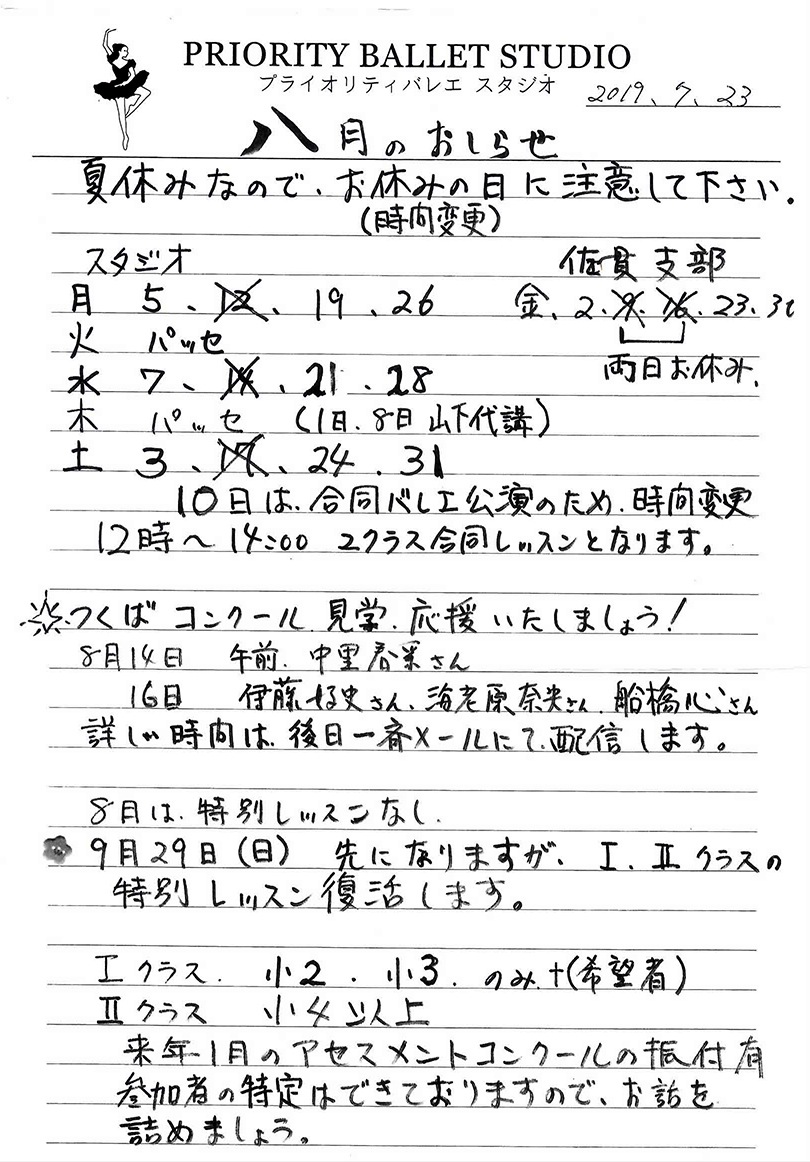 PRIORITY BALLET STUDIO
プライオリティバレエ スタジオ
2019、7、23
八月のおしらせ
夏休みなので、お休みの日に注意して下さい。
(時間変更)
スタジオ 佐貫支部
月 5、12、19、26 金、2、9、16、23、30
火 パッセ
両日お休み、
水 7、14、21、28
木 パッセ (1日、8日 山下代講)
土 3、17、24、31
10日は、合同バレエ公演のため、時間変更
12時〜14:00 2クラス合同レッスンとなります。
つくばコンクール、見学、応援いたしましょう!
8月14日 午前、中里春采さん
16日 伊藤好史さん、海老原奈央さん、船橋心さん
詳しい時間は、後日一斉メールにて、配信します。
8月は、特別レッスンなし、
9月29日(日) 先になりますが、Ⅰ、Ⅱクラスの
特別レッスン復活します。
Ⅰクラス、 小2、小3、のみ、+(希望者)
Ⅱクラス 小4以上
来年1月のアセスメントコンクールの振付有
参加者の特定はできておりますので、お話を
詰めましょう。